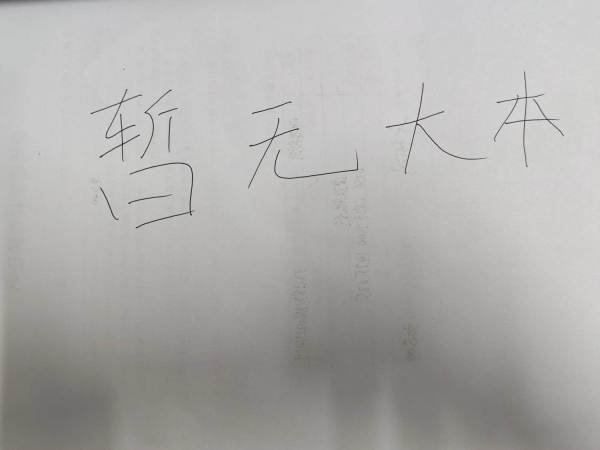 暂无大本